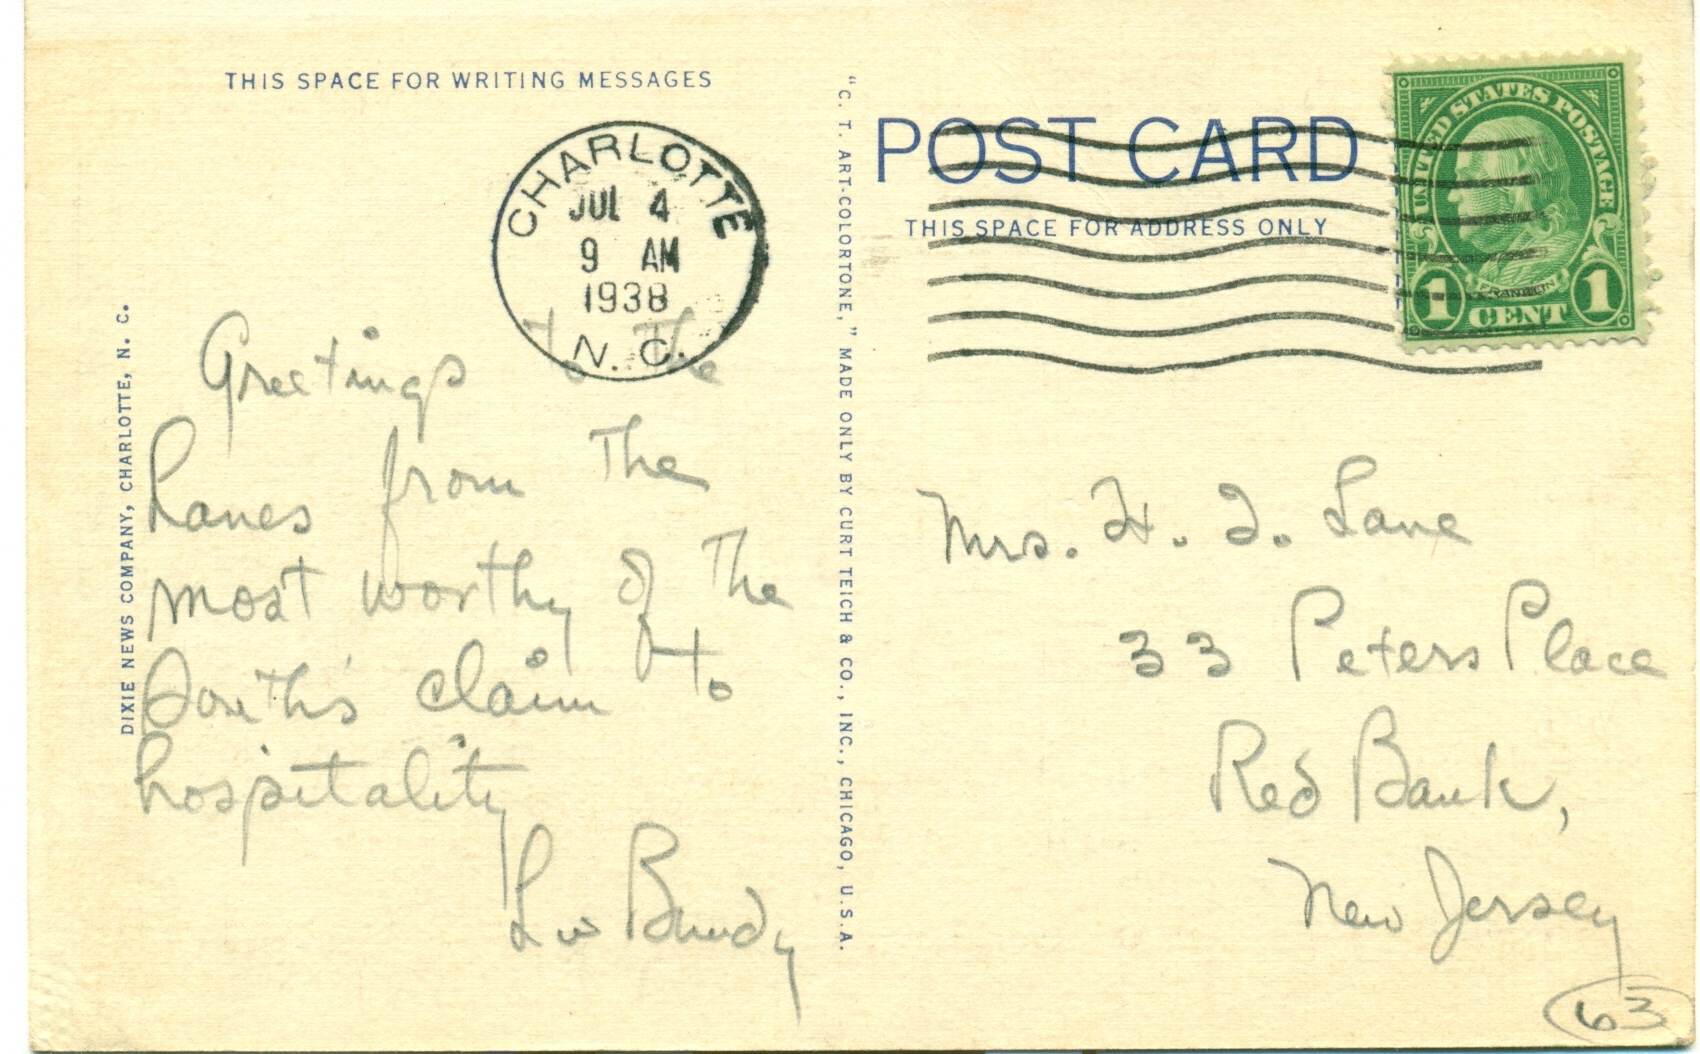 THIS SPACE FOR WRITING MESSAGES
CHARLOTTE
JUL 4
9 AM
1938
N. C.
Greetings to the
Lanes from the
most worthy of the
South's claim to
hospitality
Bundy
DIXIE NEWS COMPANY, CHARLOTTE, N. C.
"C. T. ART-COLORTONE," MADE ONLY BY CURT TEICH & CO., INC., CHICAGO, U.S.A.
POST CARD
THIS SPACE FOR ADDRESS ONLY
UNITED STATES POSTAGE
FRANKLIN
1 CENT 1
Mrs. H. I. Lane
33 Peters Place
Red Bank,
New Jersey
63